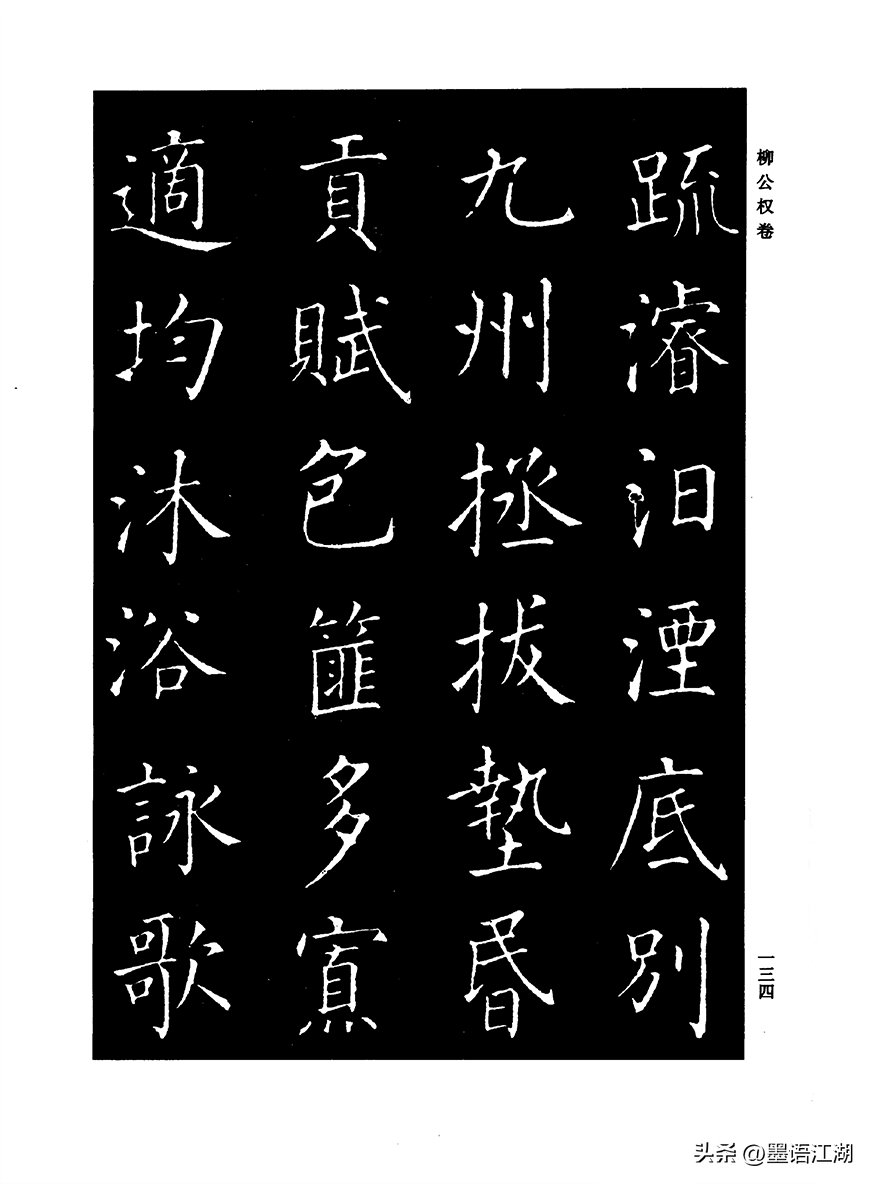 柳公权卷
䟽濬汩湮底別
九州拯拔墊昬
貢賦包篚多寡
適均沐浴詠歌
一三四
头条 @墨语江湖